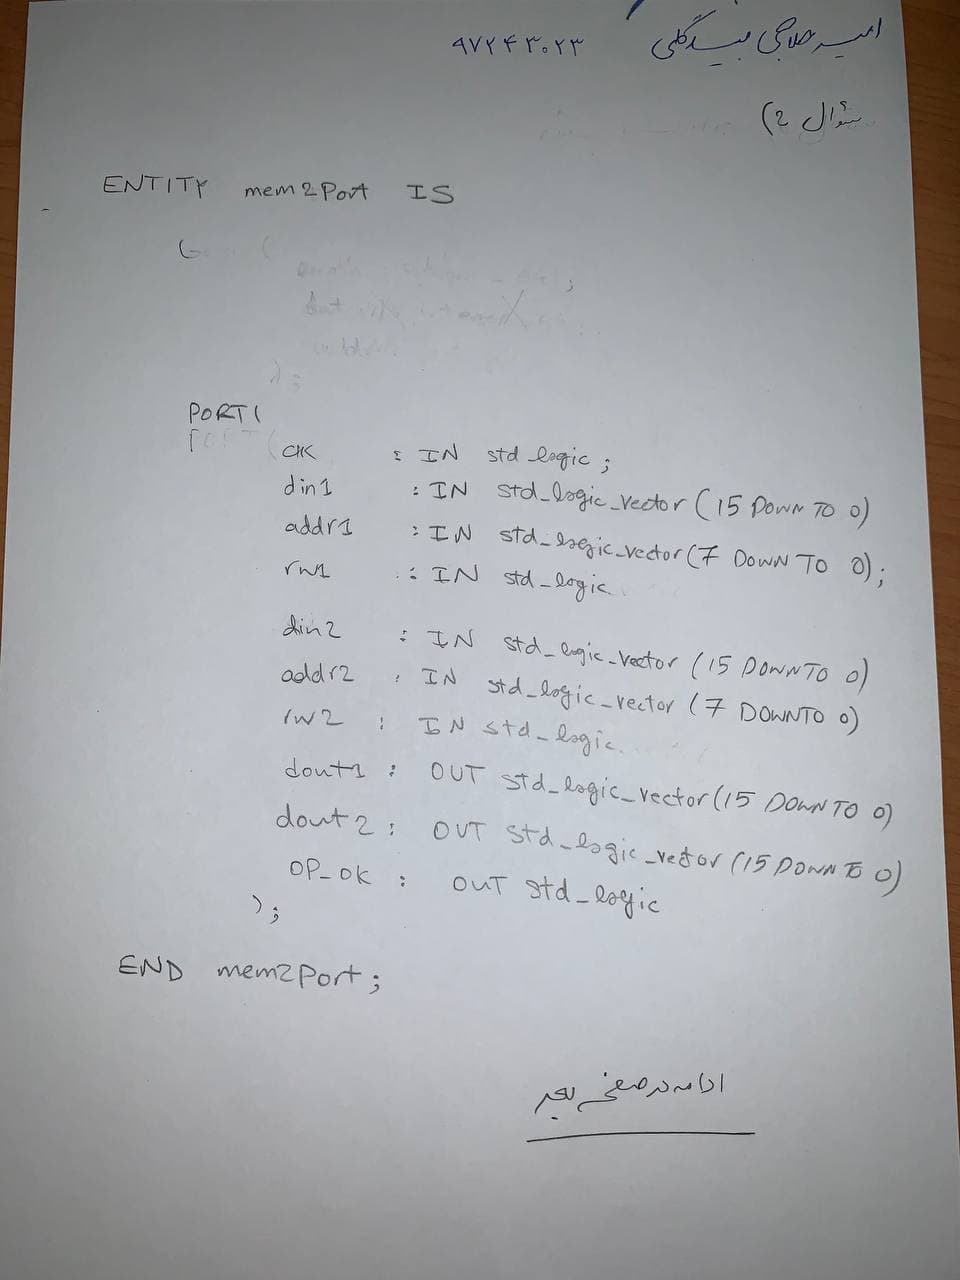 امیر حلاجی بیدگلی ۹۷۲۴۳۰۲۳
سؤال 2)
ENTITY mem2Port IS
PORT(
clk : IN std_logic;
din1 : IN std_logic_vector (15 DOWN TO 0)
addr1 : IN std_logic_vector (7 DOWN TO 0);
rw1 : IN std_logic
din2 : IN std_logic_vector (15 DOWNTO 0)
addr2 : IN std_logic_vector (7 DOWNTO 0)
rw2 : IN std_logic
dout1 : OUT std_logic_vector (15 DOWN TO 0)
dout2 : OUT std_logic_vector (15 DOWN TO 0)
OP_OK : OUT std_logic
);
END mem2Port;
ادامه در صفحه بعد